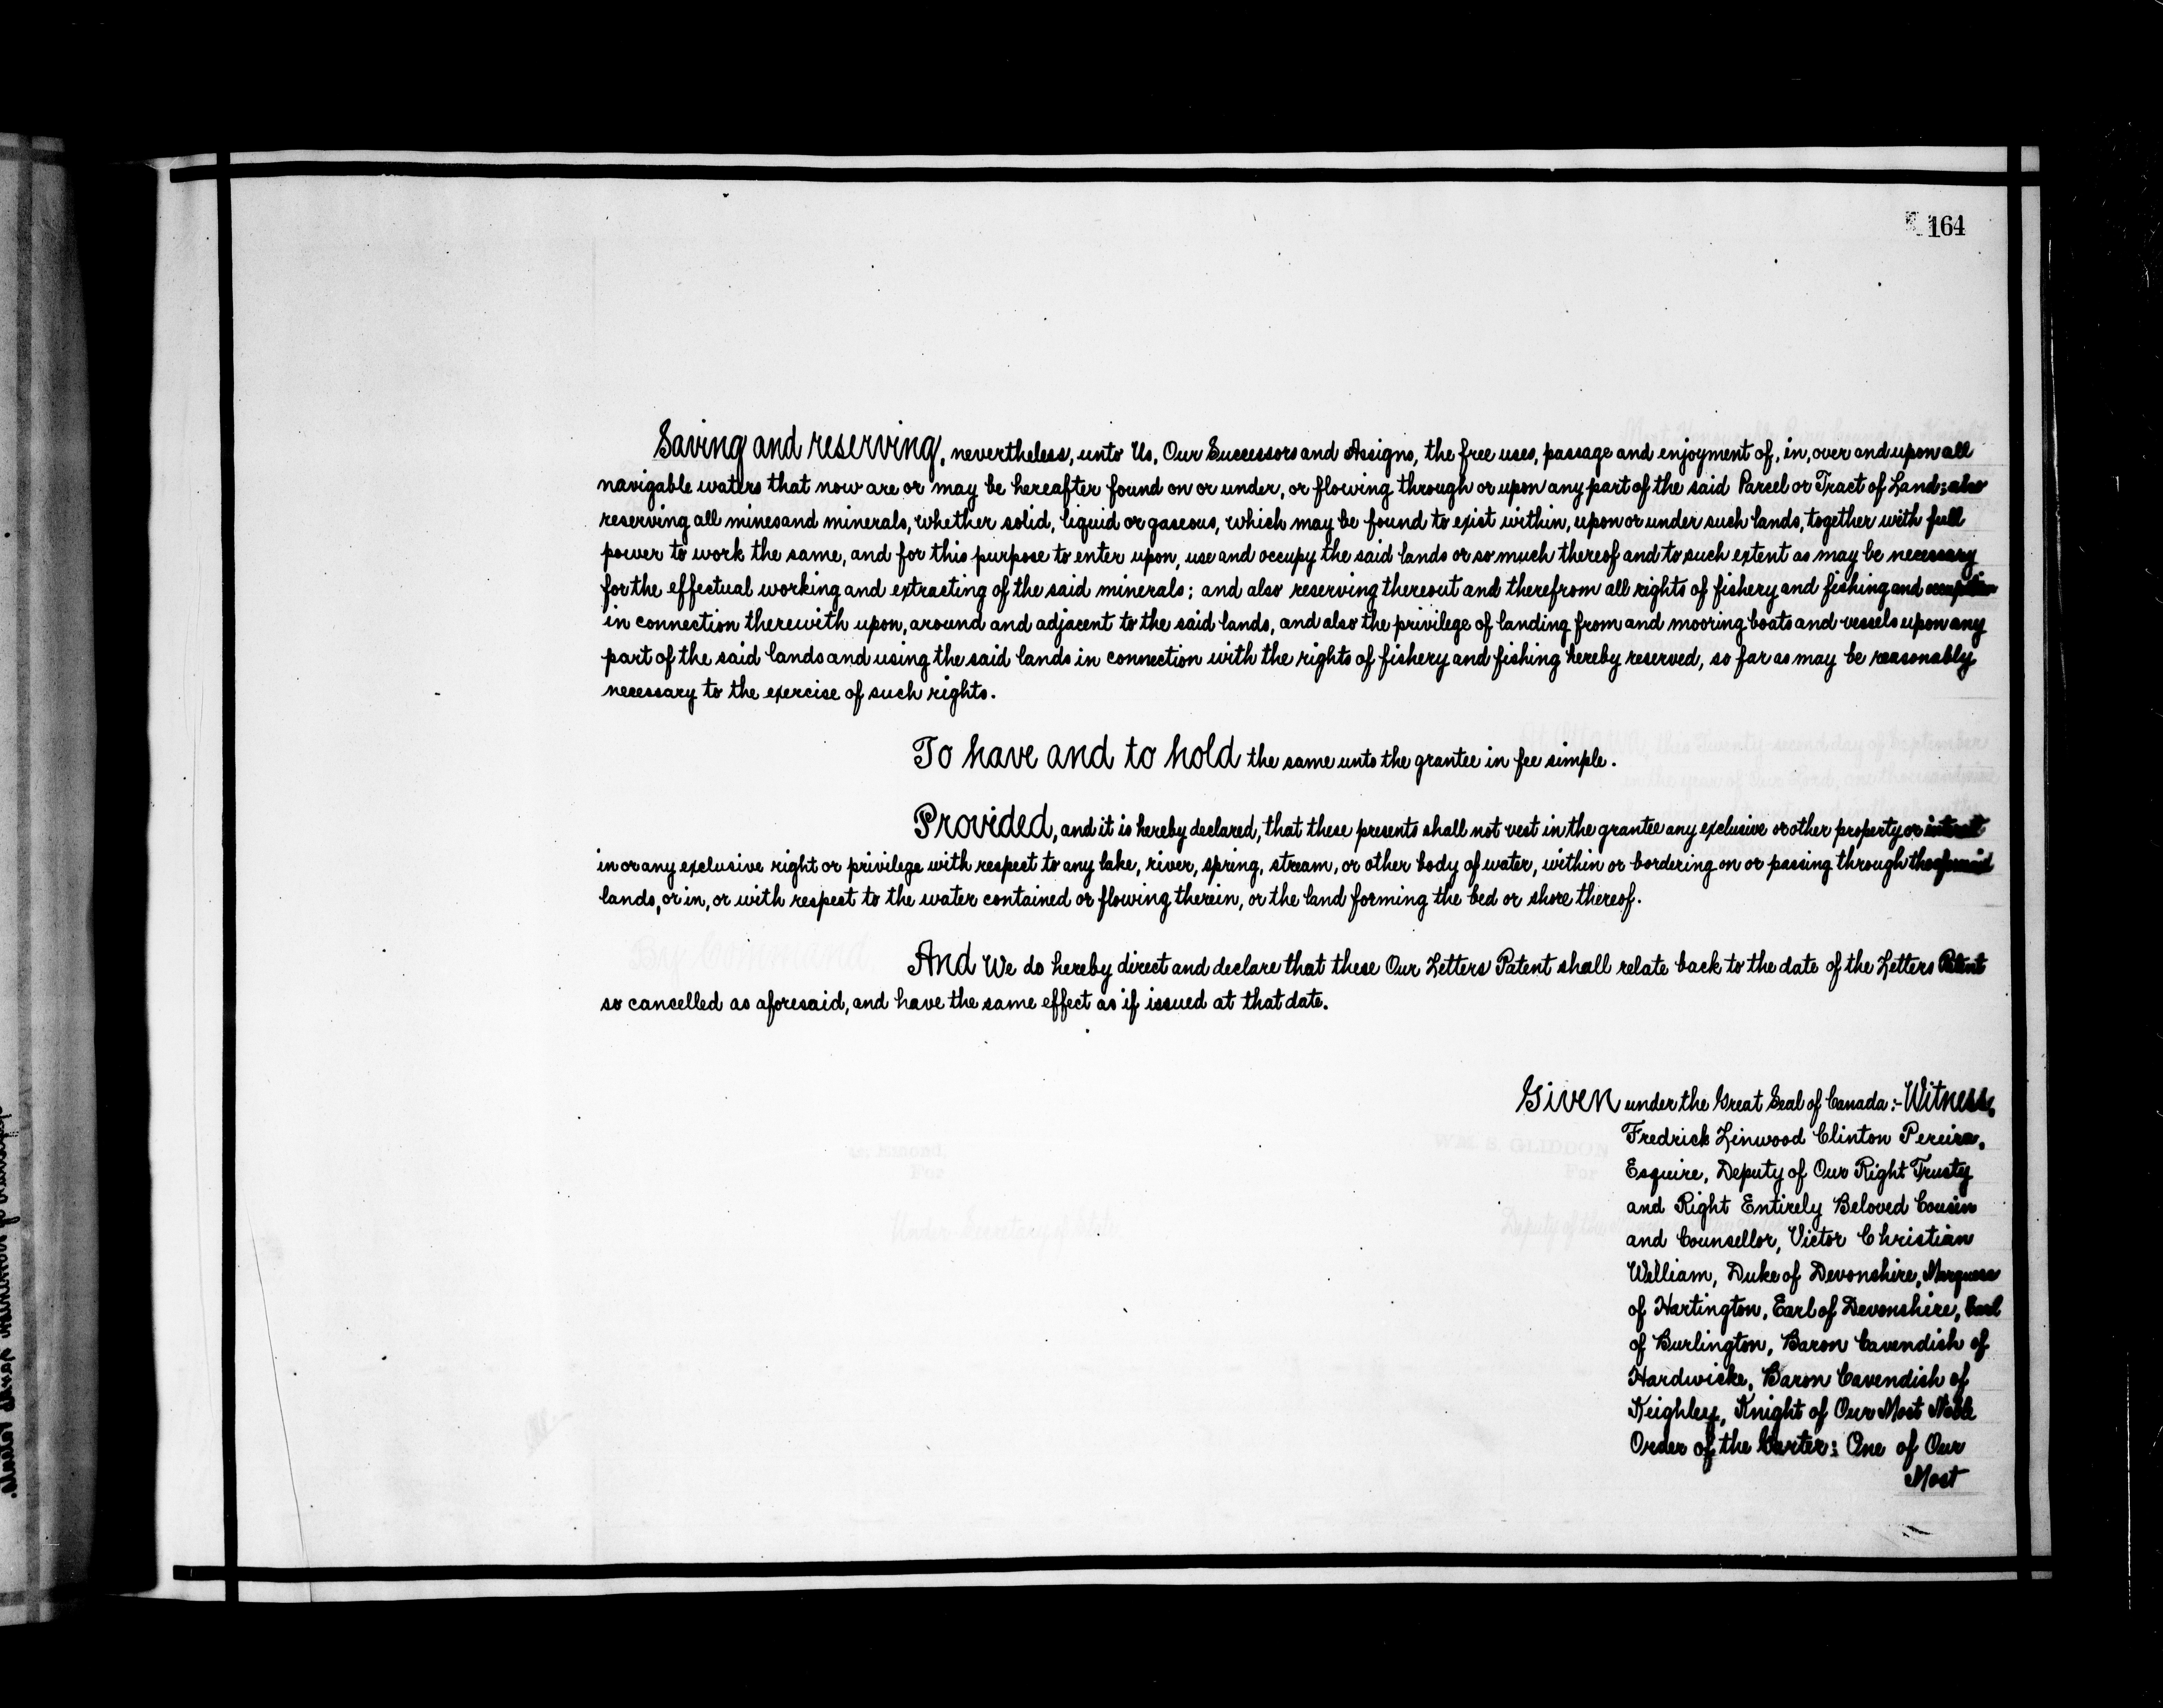 164
Saving and reserving, nevertheless, unto Us, Our Successors and Assigns, the free uses, passage and enjoyment of, in, over and upon all
navigable waters that now are or may be hereafter found on or under, or flowing through or upon any part of the said Parcel or Tract of Land; also
reserving all mines and minerals, whether solid, liquid or gaseous, which may be found to exist within, upon or under such lands, together with full
power to work the same, and for this purpose to enter upon, use and occupy the said lands or so much thereof and to such extent as may be necessary
for the effectual working and extracting of the said minerals; and also reserving thereout and therefrom all rights of fishery and fishing and occupation
in connection therewith upon, around and adjacent to the said lands, and also the privilege of landing from and mooring boats and vessels upon any
part of the said lands and using the said lands in connection with the rights of fishery and fishing hereby reserved, so far as may be reasonably
necessary to the exercise of such rights.
To have and to hold the same unto the grantee in fee simple.
Provided, and it is hereby declared, that these presents shall not vest in the grantee any exclusive or other property or interest
in or any exclusive right or privilege with respect to any lake, river, spring, stream, or other body of water, within or bordering on or passing through the aforesaid
lands, or in, or with respect to the water contained or flowing therein, or the land forming the bed or shore thereof.
And We do hereby direct and declare that these Our Letters Patent shall relate back to the date of the Letters Patent
so cancelled as aforesaid, and have the same effect as if issued at that date.
Given under the Great Seal of Canada:- Witness,
Fredrick Linwood Clinton Pereira,
Esquire, Deputy of Our Right Trusty
and Right Entirely Beloved Cousin
and Counsellor, Victor Christian
William, Duke of Devonshire, Marquess
of Hartington, Earl of Devonshire, Earl
of Burlington, Baron Cavendish of
Hardwicke, Baron Cavendish of
Keighley, Knight of Our Most Noble
Order of the Garter: One of Our
Most